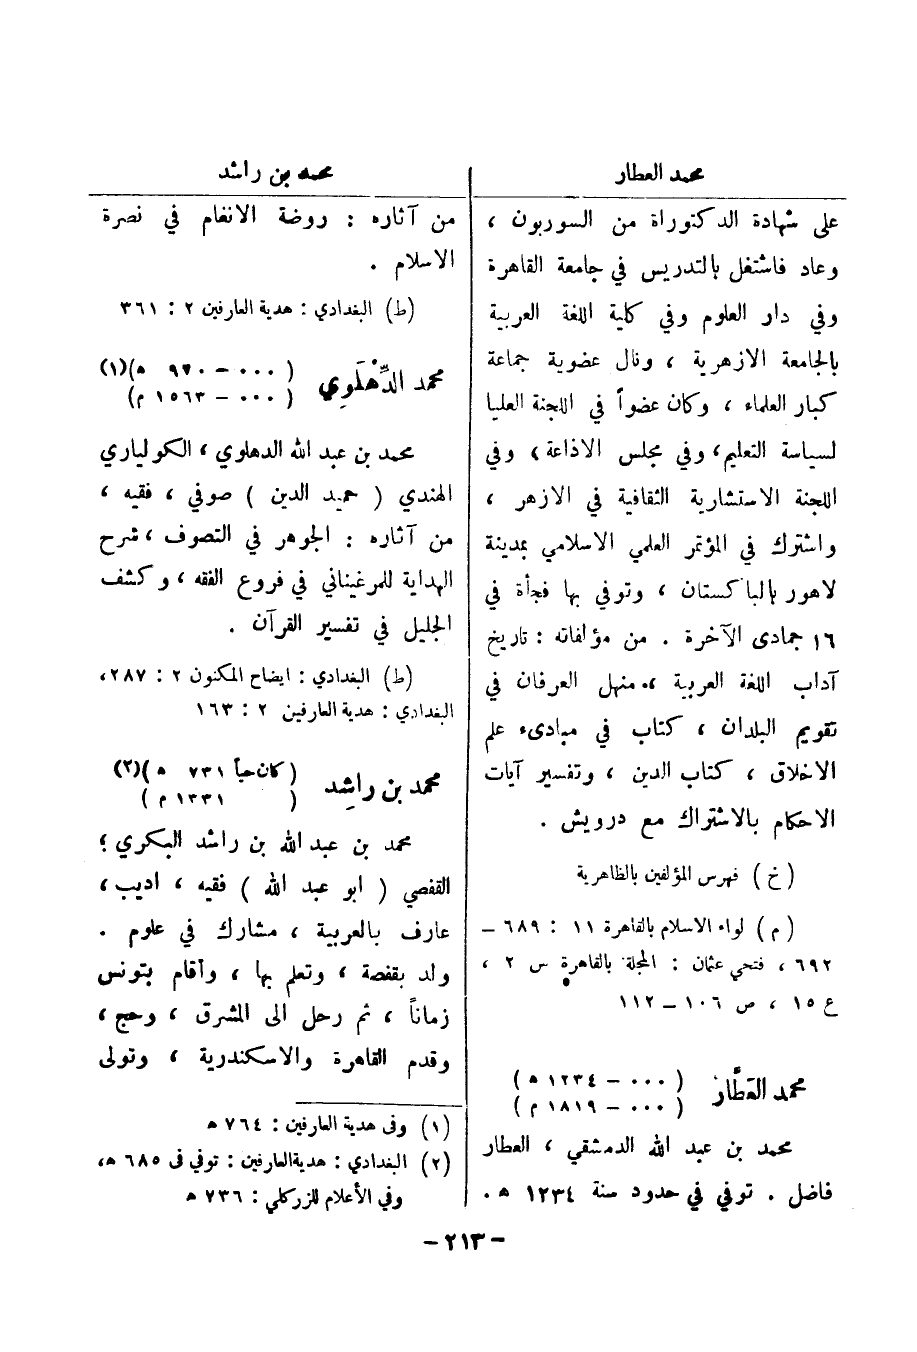 محمد العطار
على شهادة الدكتوراة من السوربون ،
وعاد فاشتغل بالتدريس في جامعة القاهرة
وفي دار العلوم وفي كلية اللغة العربية
بالجامعة الازهرية ، ونال عضوية جماعة
كبار العلماء ، وكان عضواً في اللجنة العليا
لسياسة التعليم، وفي مجلس الاذاعة ، وفي
اللجنة الاستشارية الثقافية في الازهر ،
واشترك في المؤتمر العلمي الاسلامي بمدينة
لاهور بالباكستان ، وتوفي بها فجأة في
١٦ جمادى الآخرة . من مؤلفاته : تاريخ
آداب اللغة العربية ، منهل العرفان في
تقويم البلدان ، كتاب في مبادىء علم
الاخلاق ، كتاب الدين ، وتفسير آيات
الاحكام بالاشتراك مع درويش .
( خ ) فهرس المؤلفين بالظاهرية
( م ) لواء الاسلام بالقاهرة ١١ : ٦٨٩ –
٦٩٢ ، فتحي عثمان : المجلة بالقاهرة س ٢ ،
ع ١٥ ، ص ١٠٦ – ١١٢
محمد العَطَّار ( ٠٠٠ – ١٢٣٤ ه )
( ٠٠٠ – ١٨١٩ م )
محمد بن عبد الله الدمشقي ، العطار
فاضل . توفي في حدود سنة ١٢٣٤ ه .
محمد بن راشد
من آثاره : روضة الانغام في نصرة
الاسلام .
(ط) البغدادي : هدية العارفين ٢ : ٣٦١
محمد الدِّهْلَوِي ( ٠٠٠ – ٩٧٠ ه )(١)
( ٠٠٠ – ١٥٦٣ م )
محمد بن عبد الله الدهلوي ، الكولياري
الهندي ( حميد الدين ) صوفي ، فقيه ،
من آثاره : الجوهر في التصوف ، شرح
الهداية للمرغيناني في فروع الفقه ، وكشف
الجليل في تفسير القرآن .
(ط) البغدادي : ايضاح المكنون ٢ : ٢٨٧،
البغدادي : هدية العارفين ٢ : ١٦٣
محمد بن راشِد ( كان حياً ٧٣١ ه )(٢)
( ١٣٣١ م )
محمد بن عبد الله بن راشد البكري ؛
القفصي ( ابو عبد الله ) فقيه ، اديب ،
عارف بالعربية ، مشارك في علوم .
ولد بقفصة ، وتعلم بها ، وأقام بتونس
زماناً ، ثم رحل الى المشرق ، وحج ،
وقدم القاهرة والاسكندرية ، وتولى
(١) وفى هدية العارفين : ٧٦٤ ه
(٢) البغدادي : هدية العارفين : توفي فى ٦٨٥ ه،
وفي الأعلام للزركلي : ٧٣٦ ه
– ٢١٣ –